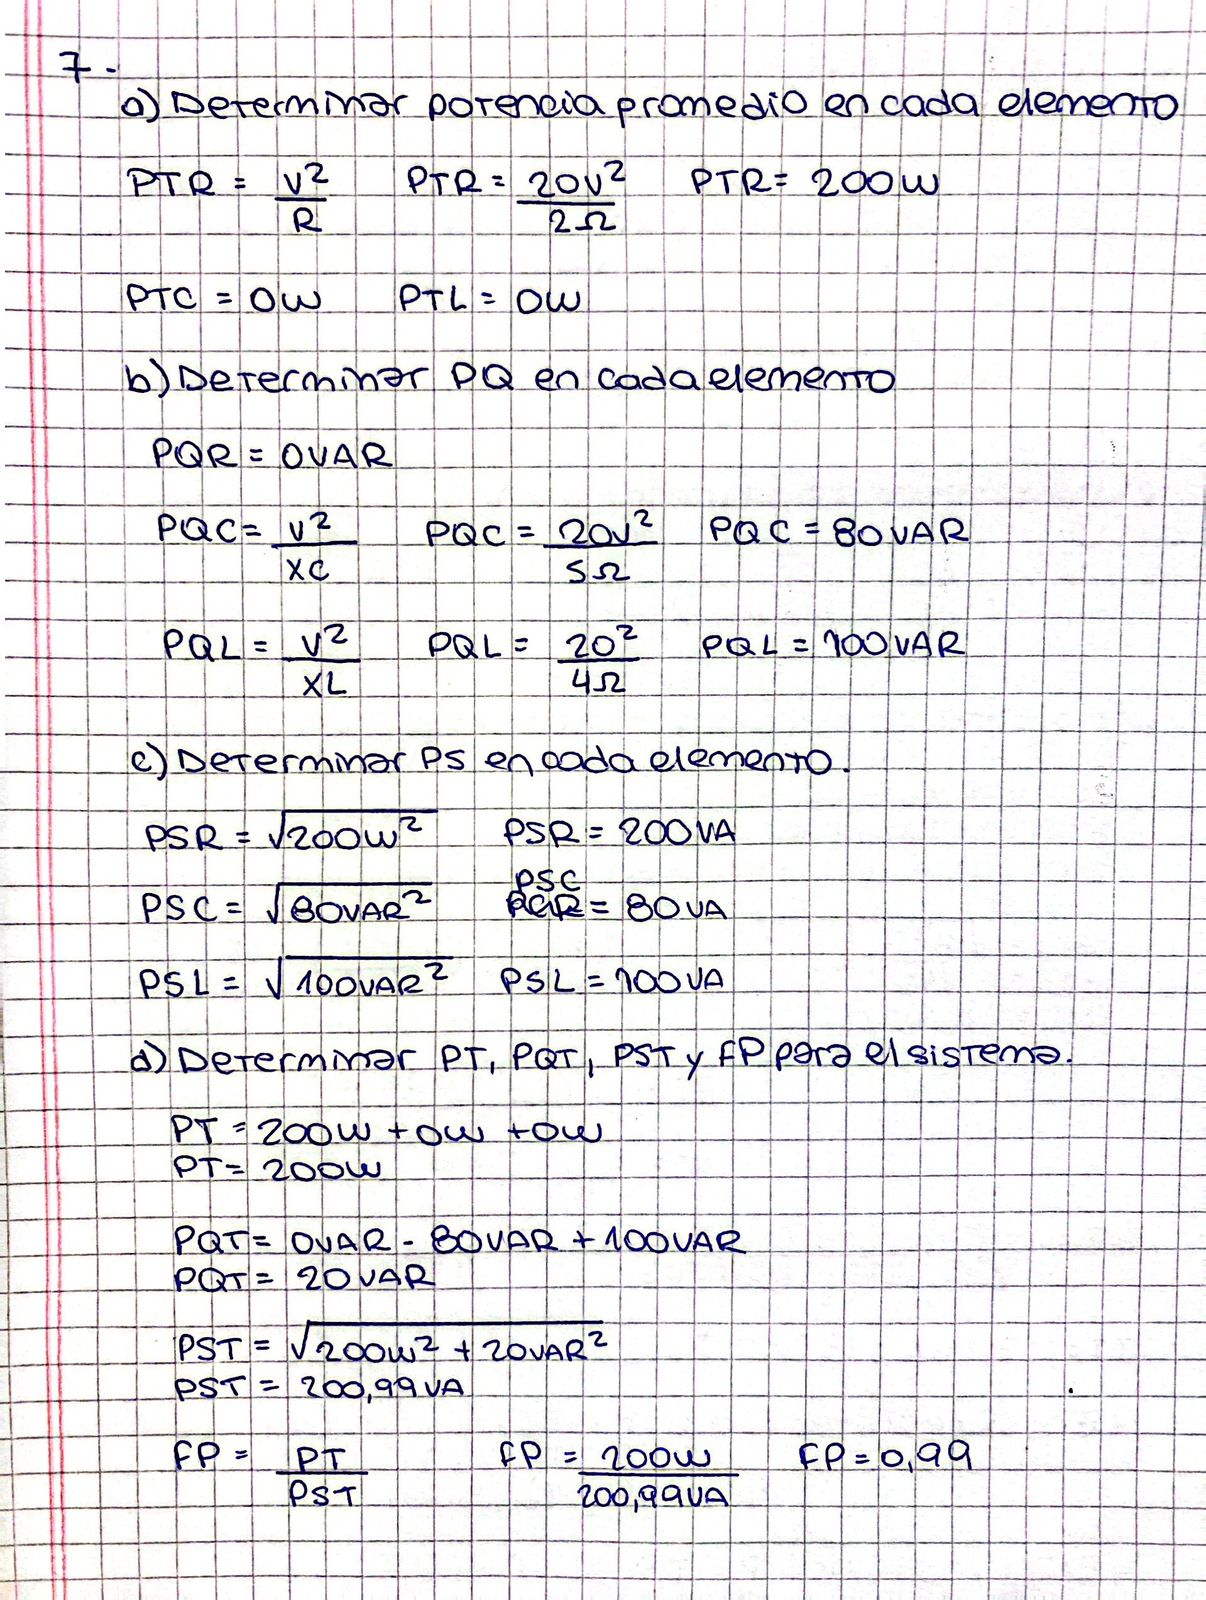 7.
a) Determinar potencia promedio en cada elemento
PTR = V²/R   PTR = 20V²/2Ω   PTR = 200W
PTC = 0W   PTL = 0W
b) Determinar PQ en cada elemento
PQR = 0VAR
PQC = V²/XC   PQC = 20V²/5Ω   PQC = 80VAR
PQL = V²/XL   PQL = 20²/4Ω   PQL = 100VAR
c) Determinar PS en cada elemento.
PSR = √200W²   PSR = 200VA
PSC = √80VAR²   PSC = 80VA
PSL = √100VAR²   PSL = 100VA
d) Determinar PT, PQT, PST y FP para el sistema.
PT = 200W + 0W + 0W
PT = 200W
PQT = 0VAR - 80VAR + 100VAR
PQT = 20VAR
PST = √200W² + 20VAR²
PST = 200,99VA
FP = PT/PST   FP = 200W/200,99VA   FP = 0,99